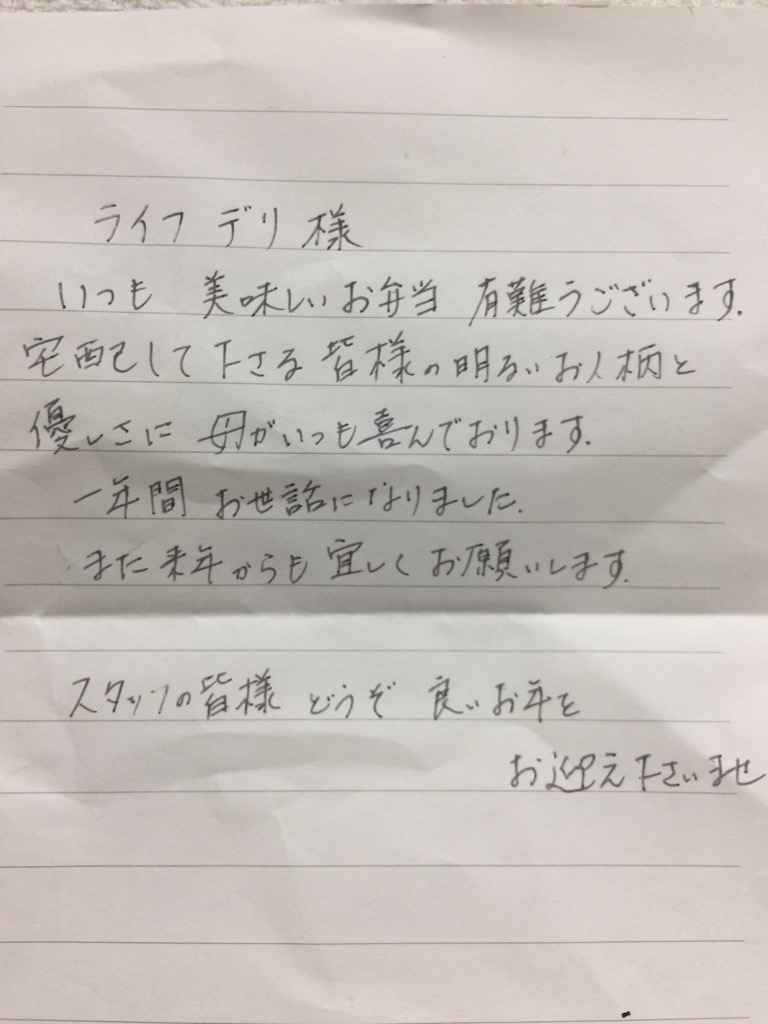 ライフ デリ 様
いつも 美味しいお弁当 有難うございます.
宅配して下さる 皆様の明るいお人柄と
優しさに 母がいつも喜んでおります.
一年間 お世話になりました.
また来年からも 宜しく お願いします.
スタッフの皆様 どうぞ 良いお年を
お迎え下さいませ